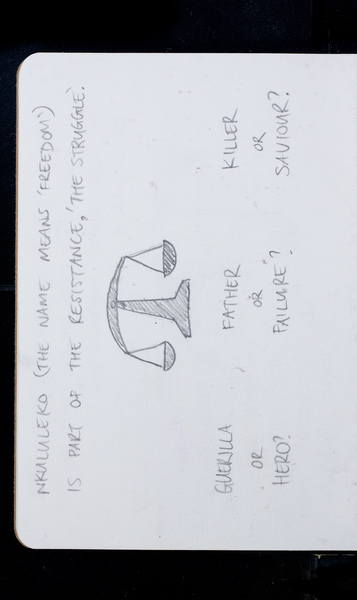 NKULULEKO (THE NAME MEANS 'FREEDOM')
IS PART OF THE RESISTANCE, 'THE STRUGGLE'.
GUERILLA
OR
HERO?
FATHER
OR
FAILURE?
KILLER
OR
SAVIOUR?